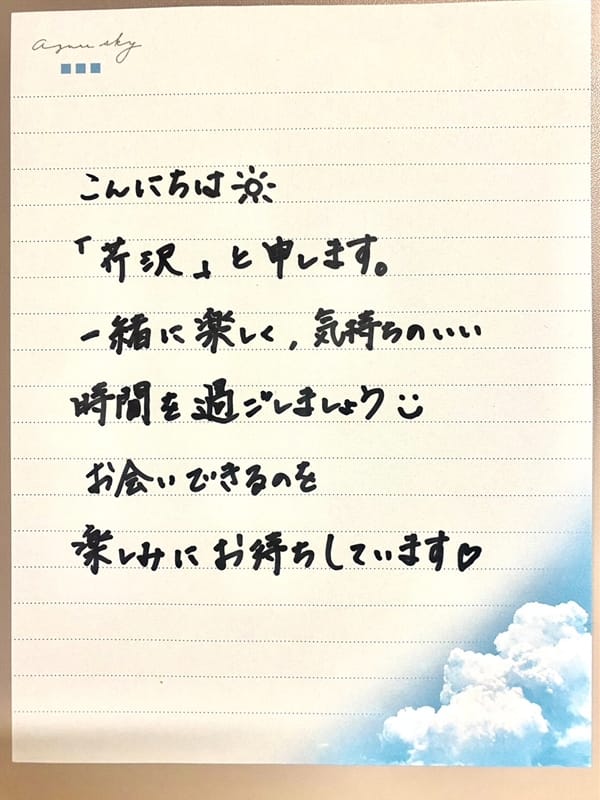 azure sky
こんにちは☀
「芹沢」と申します。
一緒に楽しく,気持ちのいい
時間を過ごしましょう☺
お会いできるのを
楽しみにお待ちしています♡